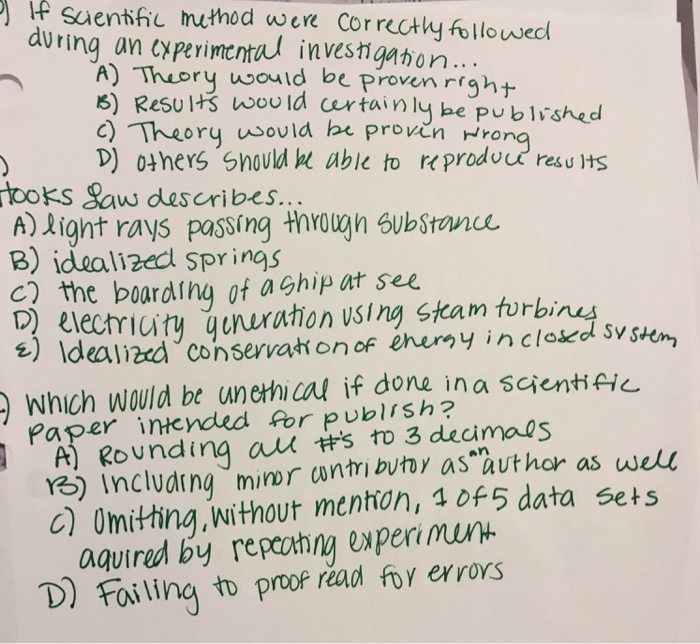 ) If scientific method were correctly followed
during an experimental investigation...
A) Theory would be proven right
B) Results would certainly be published
C) Theory would be provin wrong
D) others should be able to reproduce results
Hooks Law describes...
A) light rays passing through substance
B) idealized springs
C) the boarding of a ship at see
D) electricity generation using steam turbines
E) Idealized conservation of energy in closed system
) which would be unethical if done in a scientific
paper intended for publish?
A) Rounding all #'s to 3 decimals
B) Including minor contributor as an author as well
C) Omitting, without mention, 1 of 5 data sets
aquired by repeating experiment
D) Failing to proof read for errors